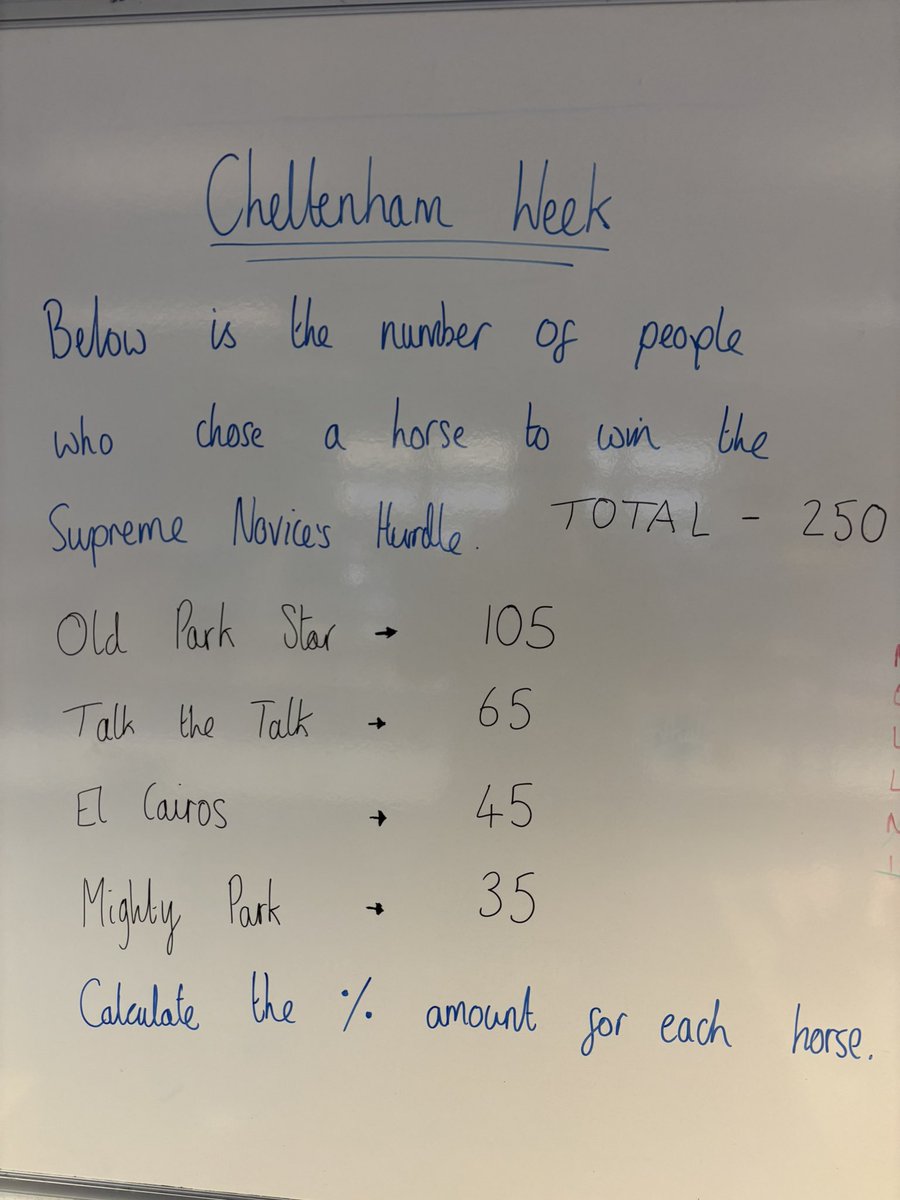 Cheltenham Week
Below is the number of people
who chose a horse to win the
Supreme Novices Hurdle. TOTAL - 250
Old Park Star → 105
Talk the Talk → 65
El Cairos → 45
Mighty Park → 35
Calculate the % amount for each horse.